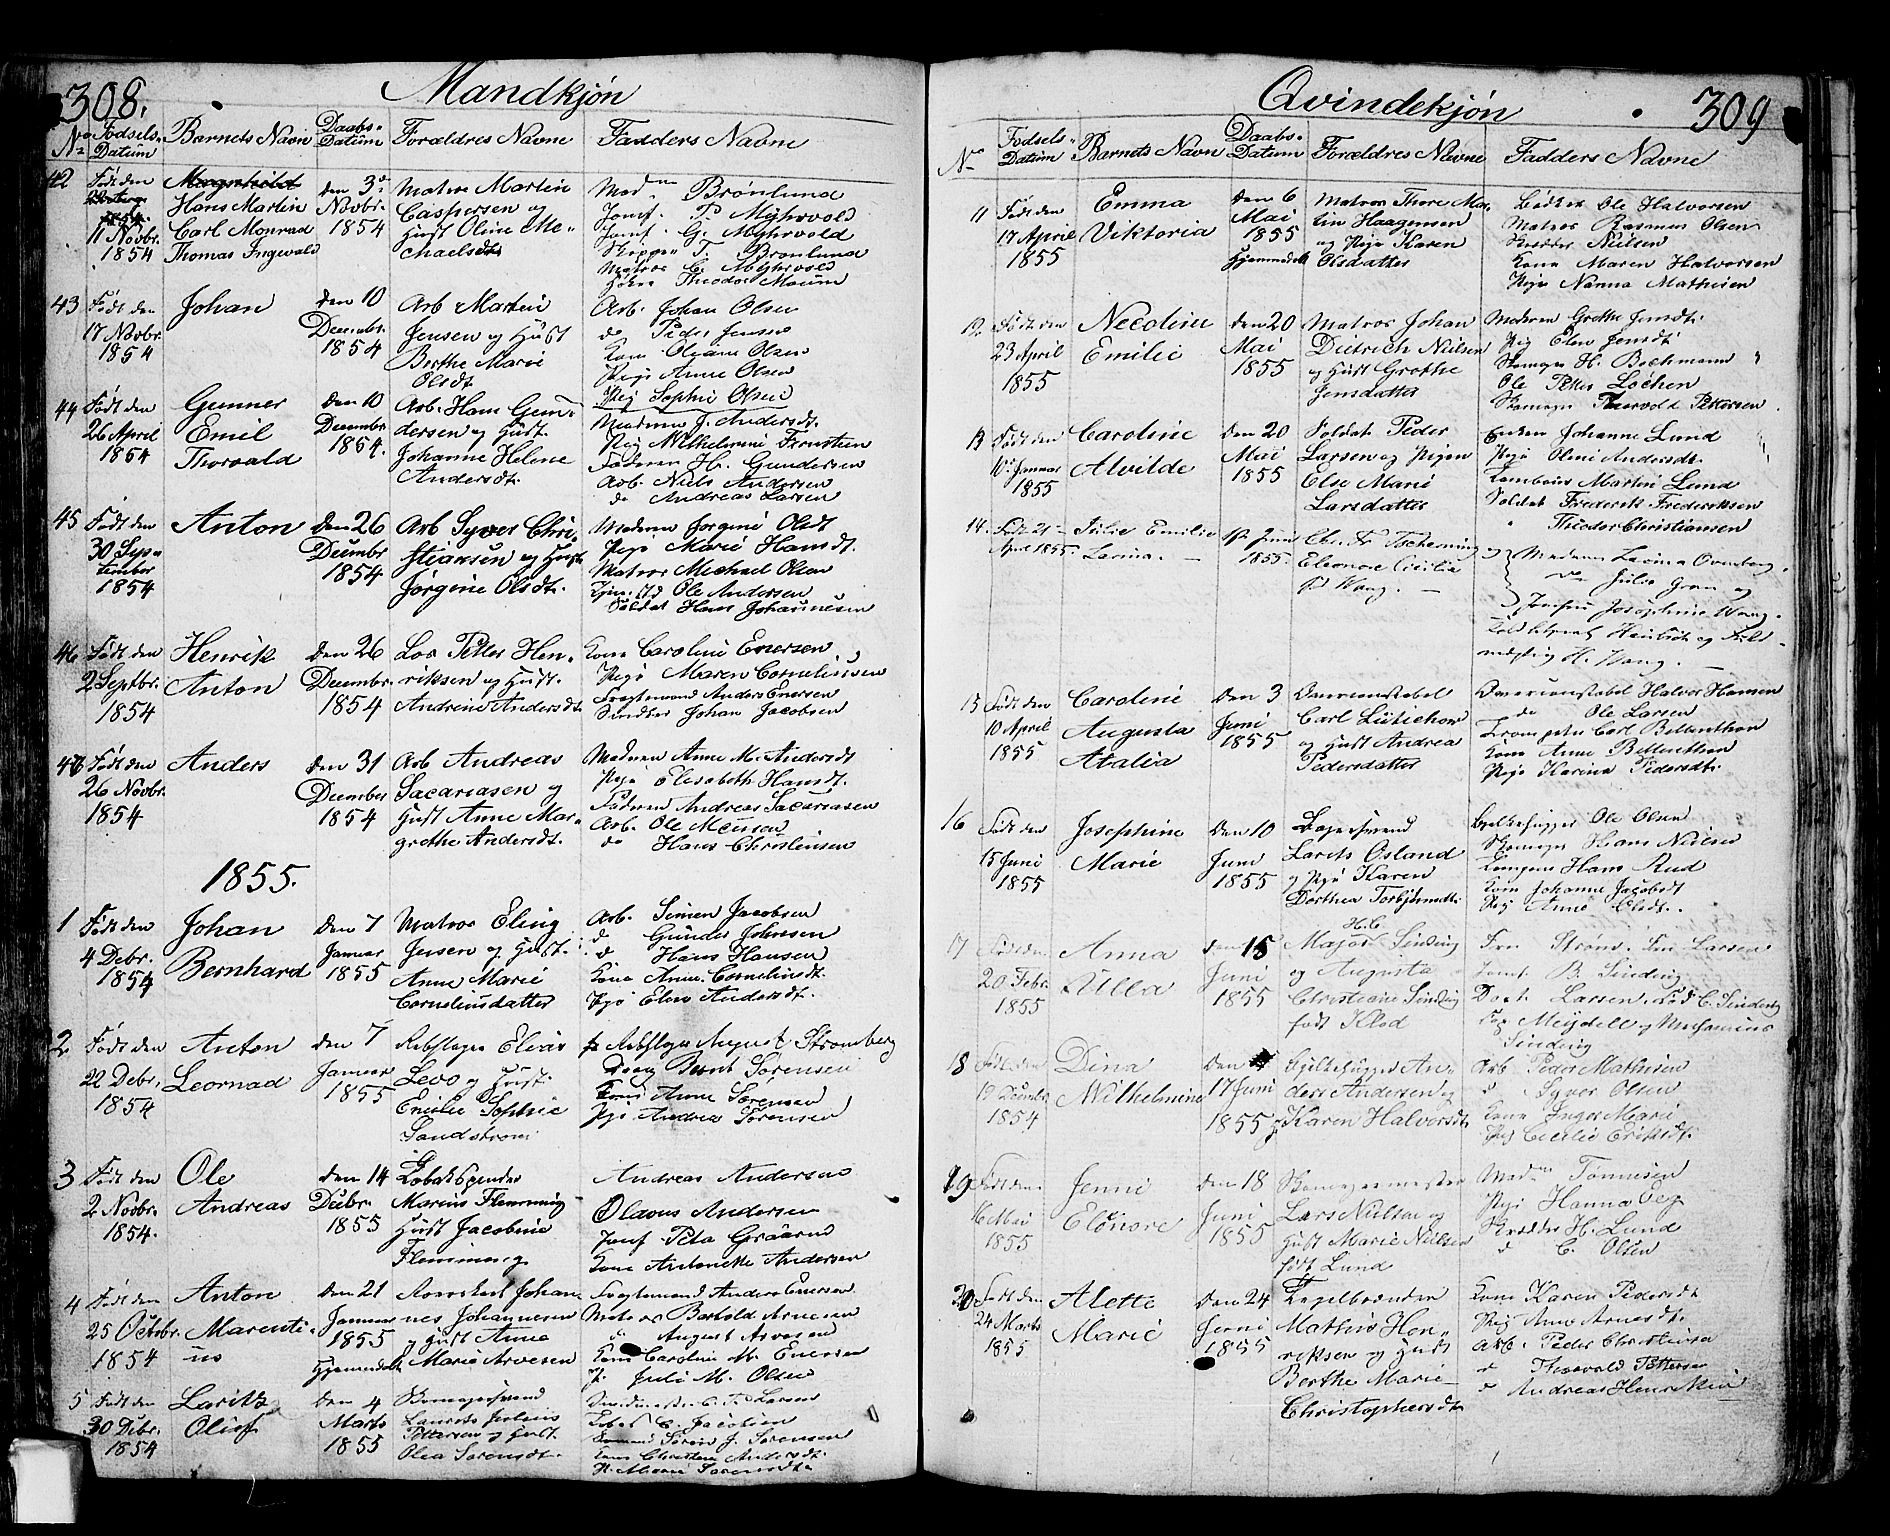 308.
Mandkjøn
No Fødsels- Datum
Barnets Navn
Daabs- Datum
Forældres Navne
Fadders Navne
42
Født den
11 Novbr.
1854
Hans Martin
Carl Monrad
Thomas Ingevald
den 3die
Novbr.
1854
Matros Martin
Caspersen og
Hust Oline Me-
chaelsdt
Mad Brønlund
Jomf. P. Myhrvold
Jomf. G. Myhrvold
Skipper T. Brønlund
Matros C. Myhrvold
Theodor Maurn
43
Født den
17 Novbr.
1854
Johan
den 10
Decembr.
1854
Arb Martin
Jensen og Hust
Berthe Marie
Olsdt
Arb. Johan Olsen
do Peder Jensen
Kone Oleane Olsen
Pige Anne Olsen
Pig Sophie Olsen
44
Født den
26 April
1854
Gunner
Emil
Thorvald
den 10
Decembr
1854.
Arb. Hans Gun-
dersen og Hust.
Johanne Helene
Andersdt.
Madmen J. Andersdt.
Pige Wilhelmine
Faderen H. Gundersen
Arb. Niels Andersen
do Andreas Larsen
45
Født den
30 Sep-
tember
1854
Anton
den 26
Decembr
1854
Arb Syver Chri-
stiansen og Hust
Jørgine Olsdt.
Moderen Jørgine Olsdt
Pige Marie Hansdt.
Matros Michael Olsen
Ole Andersen
Soldat Hans Johannesen
46
Født den
2 Septbr.
1854
Henrik
Anton
den 26
Decembr.
1854
Los Petter Hen-
riksen og Hust.
Andrine Andersdt
Kone Caroline Enersen
Pige Maren Corneliusen
Fragtemand Anders Enersen
Snedker Johan Jacobsen
47
Født den
26 Novbr.
1854
Anders
den 31
December
1854
Arb Andreas
Sacariasen og
Hust Anne Mar-
grethe Andersdt.
Madmen Anne M. Andersdt
Pige Elisabeth Hansdt.
Faderen Andreas Sacariasen
Arb. Ole
do Hans Christensen
1855.
1
Født den
4 Debr.
1854
Johan
Bernhard
den 7
Januar
1855
Matros Eling
Jensen og Hust
Anne Marie
Corneliusdatter
Arb. Simen Jacobsen
d Gunder Johnsen
d Hans Hansen
Kone Anne Corneliusdt.
Pige Elen Andersdt.
2
Født den
22 Debr.
1854
Anton
Leornad
den 7
Januar
1855
Rebslager Elias
Levo og Hust.
Emilie Sophie
Sandstrøm
Rebslager August Stromberg
Dreng Bernt Sørensen
Kone Anne Sørensen
Pige Andrea Sørensen
3
Født den
2 Novbr.
1854.
Ole
Andreas
den 14
Debr.
1855
Tobakspinder
Marius Flemming
Hust Jacobine
Flemming
Andreas Andersen
Olavus Andersen
Jomf. Peta
Kone Antonette Andersen
4
Født den
25 Octobr.
1854
Anton
Marenti-
us
den 21
Januar
1855
Hjemmedøbt
Johan-
nes Johannesen
og Hust Anne
Marie Arvesen
Fragtemand Anders Enersen
Matros Berthold Arvesen
August Arvesen
Kone Caroline M. Enersen
Juli M. Olsen
5
Født den
30 Debr.
1854
Laritz
Oluf
den 4
Marts
1855
Skomagersvend
Laurits Julius
Pettersen og Hust
Olea Sørensdt.
C. Jacobsen
Søren J. Sørensen
Kone Christine Andersdt.
Marie Sørensdt
309
Qvindekjøn
No
Fødsels- Datum
Barnets Navn
Daabs- Datum
Forældres Navne
Fadders Navne
11
Født den
17 April
1855
Emma
Viktoria
den 6
Mai
1855
Hjemmedøbt
Matros Thore Mar-
tin Haagensen
og Pige Karen
Olsdatter
Bødker Ole Halvorsen
Matros Rasmus Olsen
Skrædder Nielsen
Kone Maren Halvorsen
Pige Nanna Mathisen
12
Født den
23 April
1855
Nicoline
Emilie
den 20
Mai
1855
Matros Johan
Dietrich Nielsen
og Hust Grethe
Jensdatter
Moderen Grethe Jensdt.
Pig Elen Jensdt
Skomager H. Bechmann
Ole Petter Lochen
Skomager Thorvold Pettersen
13
Født den
10 Januar
1855
Caroline
Alvilde
den 20
Mai
1855
Soldat Peder
Larsen og Pigen
Else Marie
Larsdatter
Enken Johanne Lund
Pige Oline Andersdt.
Martin Lund
Soldat Frederik Frederiksen
Theodor Christiansen
14.
Født 21
April 1855.
Julie Emilie
Lavina.
Juni
1855.
Chr. Fr Tscherning
Eleonore Cecilia
fd Wang.
Madam Lavina Ovenberg
Julie Gran og
Jomfru Josephine Wang.
H. Wang.
15
Født den
10 April
1855
Caroline
Augusta
Atalia
den 3
Juni
1855
Overconstabel
Carl Lütichow
og Hust Andrea
Pedersdatter
Overconstabel Halvor Hansen
do Ole Larsen
Trompeter Carl Bittenthon
Kone Anne Bittenthon
Pige Karina Pedersdt.
16
Født den
15 Juni
1855
Josephine
Marie
den 10
Juni
1855
Bagersvend
Larits Osland
og Pige Karen
Dorthea Torbjørnsdt.
Bjelkehugger Ole Olsen
Skomager Hans Nielsen
Hans Rud
Kone Johanne Jacobsdt
Pig Anne Olsdt.
17
Født den
20 Febr.
1855
Anna
Ulla
den 15
Juni
1855
H.C.
Major Sinding
og Augusta
Christiane Sinding
født Klod
Fru Strøm. Fru Larsen
Jomf B. Sinding
Larsen, Stud C. Sinding
og Meydell og
Sinding
18
Født den
19 Decembr
1854
Dina
Wilhelmine
den
17 Juni
1855
Bjelkehugger An-
ders Andersen og
Karen Halvorsdt
Arb Peder Mathisen
d Syver Olsen
Kone Inger Marie
Pig Cecilie Eriksdt.
19
Født den
6 Mai
1855
Jenni
Elonore
den 18
Juni
1855
Skomagermester
Lars Nielsen og
Hust Marie Nielsen
født Lund
Mad Tønnesen
Pige Hanna Veg
Skrædder H. Lund
d C. Olsen
20
Født den
24 Marts
1855
Alette
Marie
den 24
Juni
1855
Tegelbrænder
Mathis Hen-
riksen og Hust
Berthe Marie
Christophersdt.
Kone Karen Pedersdt
Pig Anne Arnesdt.
Arb. Peder Christensen
d Thorvald Pettersen
d Andreas Henriksen